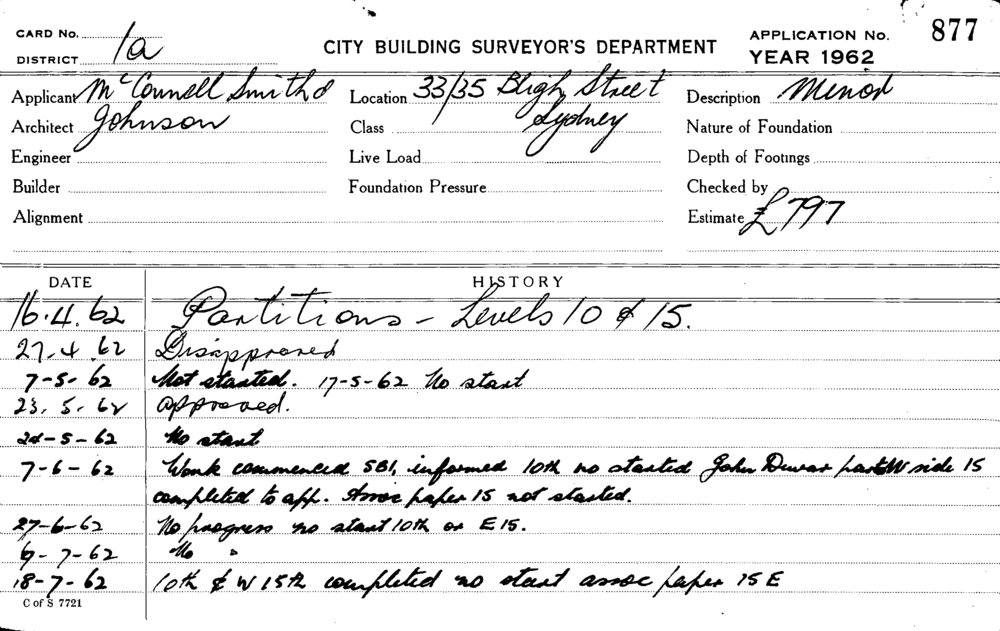 CARD No.
DISTRICT 1a
CITY BUILDING SURVEYOR'S DEPARTMENT
APPLICATION No. 877
YEAR 1962
Applicant McConnell Smith &
Location 33/35 Bligh Street
Description Minor
Architect Johnson
Class Sydney
Nature of Foundation
Engineer
Live Load
Depth of Footings
Builder
Foundation Pressure
Checked by
Alignment
Estimate £797
DATE HISTORY
16.4.62 Partitions - Levels 10 & 15.
27.4.62 Disapproved
7-5-62 Not started. 17-5-62 No start
23.5.62 Approved.
24-5-62 No start
7-6-62 Work commenced SBI, informed 10th no started John Dewar part W side 15
completed to app. Assoc paper 15 not started.
27-6-62 No progress no start 10th or E15.
9-7-62 No "
18-7-62 10th & W 15th completed no start assoc paper 15E
C of S 7721